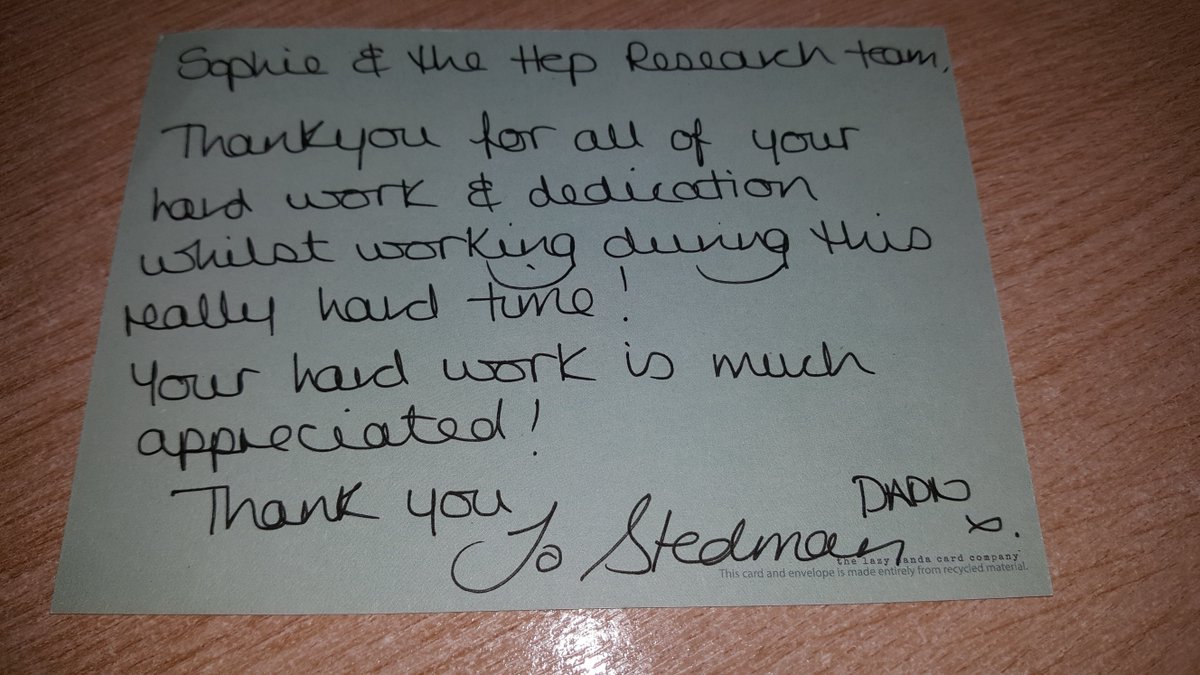 Sophie & the Hep Research team,
Thankyou for all of your
hard work & dedication
whilst working during this
really hard time!
Your hard work is much
appreciated!
Thank you
Jo Stedman
DADN
x.
the lazy panda card company
This card and envelope is made entirely from recycled material.